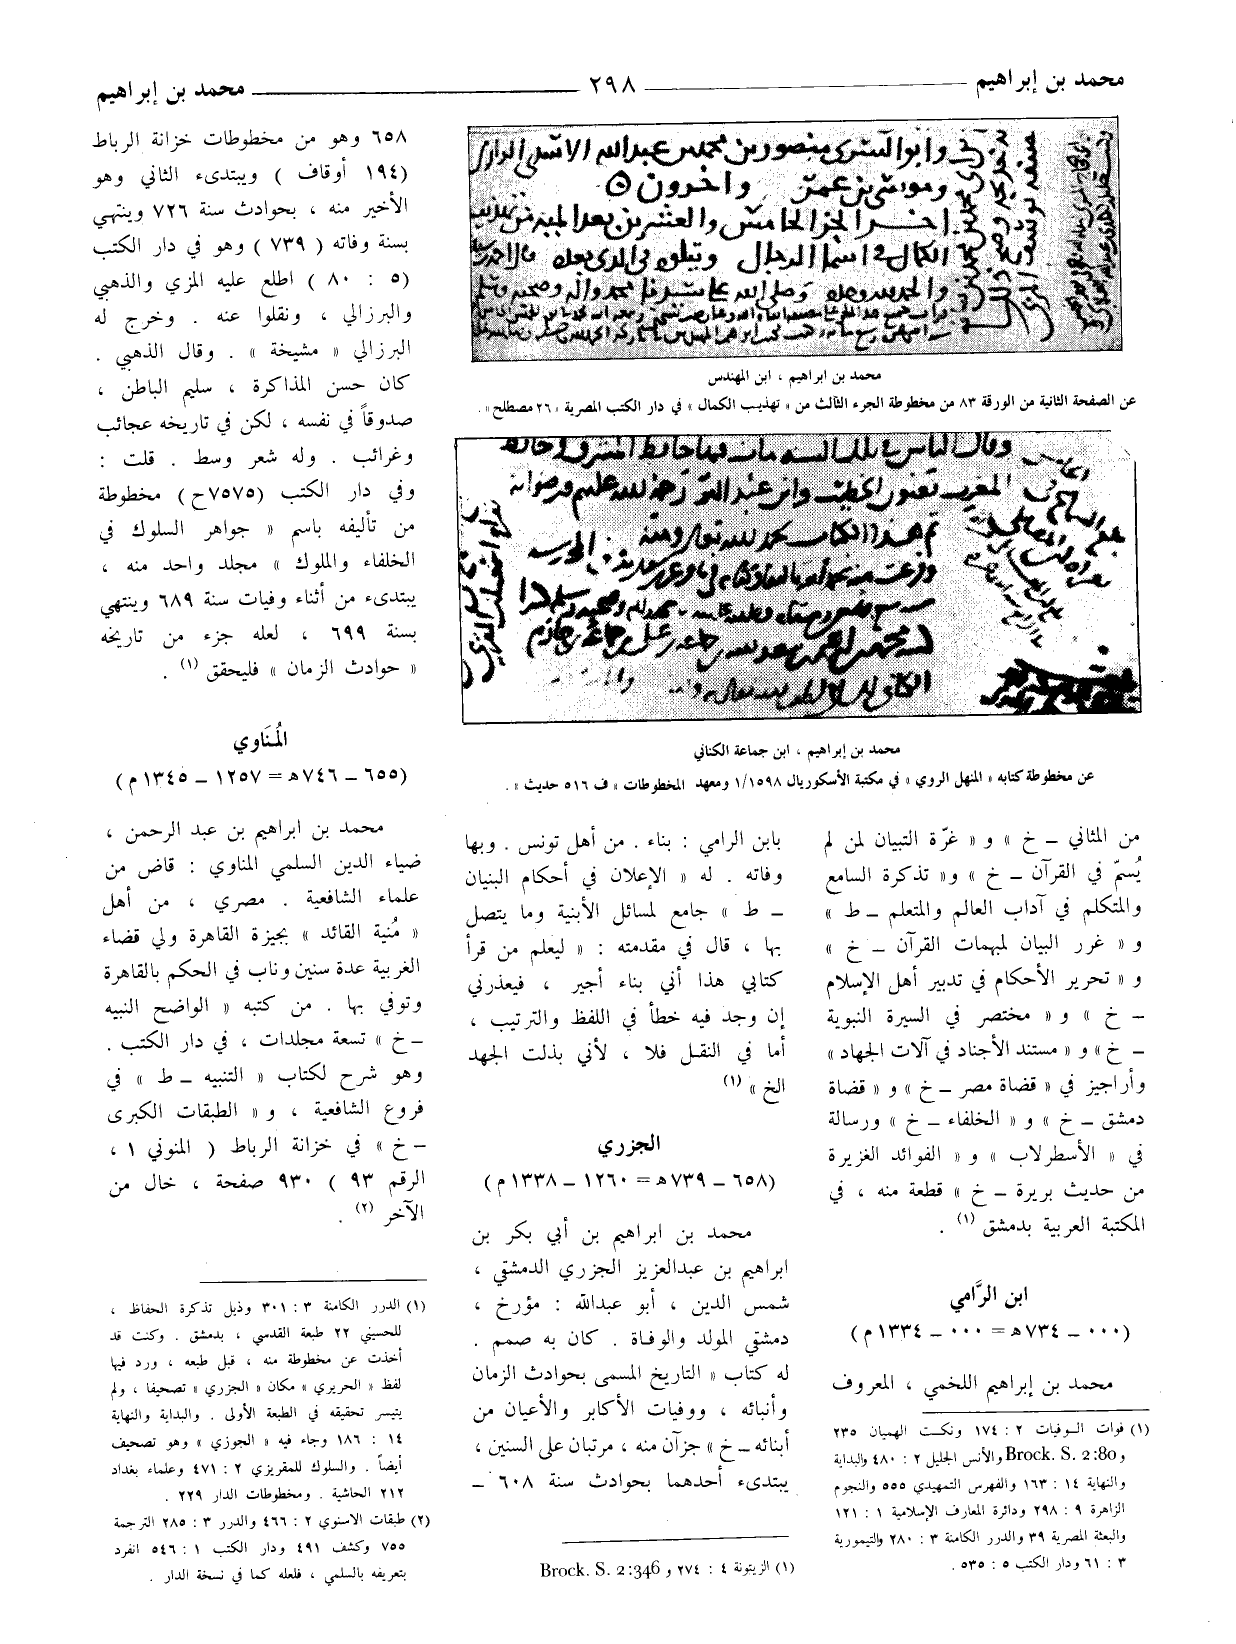 محمد بن إبراهيم
٢٩٨
محمد بن إبراهيم
وابو السرى منصور بن محمد بن عبدالله الاسدي الرازي
وموسى بن عمر واخرون
اخر الجزء الخامس والعشرين بعد المايه من تهذيب
الكمال في اسما الرجال ويتلوه في الذي بعده
والحمد لله وحده وصلى الله على سيدنا محمد واله وصحبه وسلم
محمد بن ابراهيم ، ابن المهندس
عن الصفحة الثانية من الورقة ٨٣ من مخطوطة الجزء الثالث من « تهذيب الكمال » في دار الكتب المصرية « ٢٦ مصطلح» .
تم هذا الكتاب بحمد الله تعالى ومنه
محمد بن إبراهيم ، ابن جماعة الكناني
عن مخطوطة كتابه « المنهل الروي » في مكتبة الأسكوريال ١/١٥٩٨ ومعهد المخطوطات « ف ٥١٦ حديث » .
من المثاني ـ خ » و « غرّة التبيان لمن لم
يُسمّ في القرآن ـ خ » و« تذكرة السامع
والمتكلم في آداب العالم والمتعلم ـ ط »
و « غرر البيان لمبهمات القرآن ـ خ »
و « تحرير الأحكام في تدبير أهل الإسلام
ـ خ » و « مختصر في السيرة النبوية
ـ خ » و « مستند الأجناد في آلات الجهاد»
وأراجيز في « قضاة مصر ـ خ » و « قضاة
دمشق ـ خ » و « الخلفاء ـ خ » ورسالة
في « الأسطرلاب » و « الفوائد الغزيرة
من حديث بريرة ـ خ » قطعة منه ، في
المكتبة العربية بدمشق (١) .
ابن الرَّامي
(٠٠٠ ـ ٧٣٤هـ = ٠٠٠ ـ ١٣٣٤ م)
محمد بن إبراهيم اللخمي ، المعروف
(١) فوات الوفيات ٢ : ١٧٤ ونكت الهميان ٢٣٥
و Brock. S. 2:80 والأنس الجليل ٢ : ٤٨٠ والبداية
والنهاية ١٤ : ١٦٣ والفهرس التمهيدي ٥٥٥ والنجوم
الزاهرة ٩ : ٢٩٨ ودائرة المعارف الإسلامية ١ : ١٢١
والبعثة المصرية ٣٩ والدرر الكامنة ٣ : ٢٨٠ والتيمورية
٣ : ٦١ ودار الكتب ٥ : ٥٣٥ .
بابن الرامي : بناء . من أهل تونس . وبها
وفاته . له « الإعلان في أحكام البنيان
ـ ط » جامع لمسائل الأبنية وما يتصل
بها ، قال في مقدمته : « ليعلم من قرأ
كتابي هذا أني بناء أجير ، فيعذرني
إن وجد فيه خطأ في اللفظ والترتيب ،
أما في النقل فلا ، لأني بذلت الجهد
الخ » (١)
الجزري
(٦٥٨ ـ ٧٣٩هـ = ١٢٦٠ ـ ١٣٣٨ م)
محمد بن ابراهيم بن أبي بكر بن
ابراهيم بن عبدالعزيز الجزري الدمشقي ،
شمس الدين ، أبو عبدالله : مؤرخ ،
دمشقي المولد والوفاة . كان به صمم .
له كتاب « التاريخ المسمى بحوادث الزمان
وأنبائه ، ووفيات الأكابر والأعيان من
أبنائه ـ خ » جزآن منه ، مرتبان على السنين ،
يبتدىء أحدهما بحوادث سنة ٦٠٨ ـ
(١) الزيتونة ٤ : ٢٧٤ و Brock. S. 2:346
٦٥٨ وهو من مخطوطات خزانة الرباط
(١٩٤ أوقاف ) ويبتدىء الثاني وهو
الأخير منه ، بحوادث سنة ٧٢٦ وينتهي
بسنة وفاته ( ٧٣٩ ) وهو في دار الكتب
(٥ : ٨٠ ) اطلع عليه المزي والذهبي
والبرزالي ، ونقلوا عنه . وخرج له
البرزالي « مشيخة » . وقال الذهبي .
كان حسن المذاكرة ، سليم الباطن ،
صدوقاً في نفسه ، لكن في تاريخه عجائب
وغرائب . وله شعر وسط . قلت :
وفي دار الكتب (٧٥٧٥ح) مخطوطة
من تأليفه باسم « جواهر السلوك في
الخلفاء والملوك » مجلد واحد منه ،
يبتدىء من أثناء وفيات سنة ٦٨٩ وينتهي
بسنة ٦٩٩ ، لعله جزء من تاريخه
« حوادث الزمان » فليحقق (١) .
المُنَاوي
(٦٥٥ ـ ٧٤٦هـ = ١٢٥٧ ـ ١٣٤٥ م)
محمد بن ابراهيم بن عبد الرحمن ،
ضياء الدين السلمي المناوي : قاض من
علماء الشافعية . مصري ، من أهل
« مُنية القائد » بجيزة القاهرة ولي قضاء
الغربية عدة سنين وناب في الحكم بالقاهرة
وتوفي بها . من كتبه « الواضح النبيه
ـ خ » تسعة مجلدات ، في دار الكتب .
وهو شرح لكتاب « التنبيه ـ ط » في
فروع الشافعية ، و « الطبقات الكبرى
ـ خ » في خزانة الرباط ( المنوني ١ ،
الرقم ٩٣ ) ٩٣٠ صفحة ، خال من
الآخر (٢) .
(١) الدرر الكامنة ٣ : ٣٠١ وذيل تذكرة الحفاظ ،
للحسيني ٢٢ طبعة القدسي ، بدمشق . وكنت قد
أخذت عن مخطوطة منه ، قبل طبعه ، ورد فيها
لفظ « الحريري » مكان « الجزري » تصحيفا ، ولم
يتيسر تحقيقه في الطبعة الأولى . والبداية والنهاية
١٤ : ١٨٦ وجاء فيه « الجوزي » وهو تصحيف
أيضاً . والسلوك للمقريزي ٢ : ٤٧١ وعلماء بغداد
٢١٢ الحاشية . ومخطوطات الدار ٢٢٩ .
(٢) طبقات الاسنوي ٢ : ٤٦٦ والدرر ٣ : ٢٨٥ الترجمة
٧٥٥ وكشف ٤٩١ ودار الكتب ١ : ٥٤٦ انفرد
بتعريفه بالسلمي ، فلعله كما في نسخة الدار .